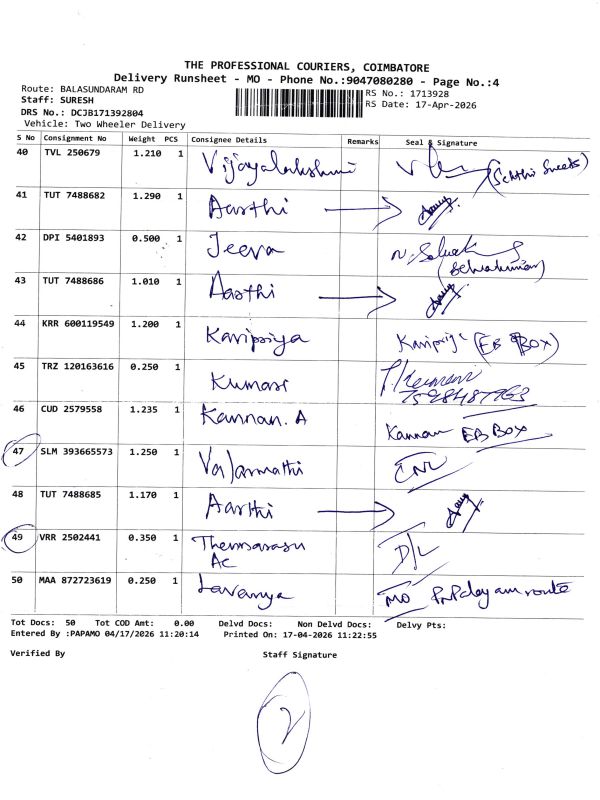 THE PROFESSIONAL COURIERS, COIMBATORE
Delivery Runsheet - MO - Phone No.:9047080280 - Page No.:4
Route: BALASUNDARAM RD
RS No.: 1713928
Staff: SURESH
RS Date: 17-Apr-2026
DRS No.: DCJB171392804
Vehicle: Two Wheeler Delivery
S No Consignment No Weight PCS Consignee Details Remarks Seal & Signature
40 TVL 250679 1.210 1 Vijayalakshmi
41 TUT 7488682 1.290 1 Aarthi
42 DPI 5401893 0.500 1 Jeeva
(Selvakumar)
43 TUT 7488686 1.010 1 Aarthi
44 KRR 600119549 1.200 1 Karipriya Karipriya (EB BOX)
45 TRZ 120163616 0.250 1 Kumari
46 CUD 2579558 1.235 1 Kannan. A Kannan EB BOX
47 SLM 393665573 1.250 1 Valarmathi
48 TUT 7488685 1.170 1 Aarthi
49 VRR 2502441 0.350 1 D/L
AC
50 MAA 872723619 0.250 1 Lavanya MO route
Tot Docs: 50 Tot COD Amt: 0.00 Delvd Docs: Non Delvd Docs: Delvy Pts:
Entered By :PAPAMO 04/17/2026 11:20:14 Printed On: 17-04-2026 11:22:55
Verified By Staff Signature
2